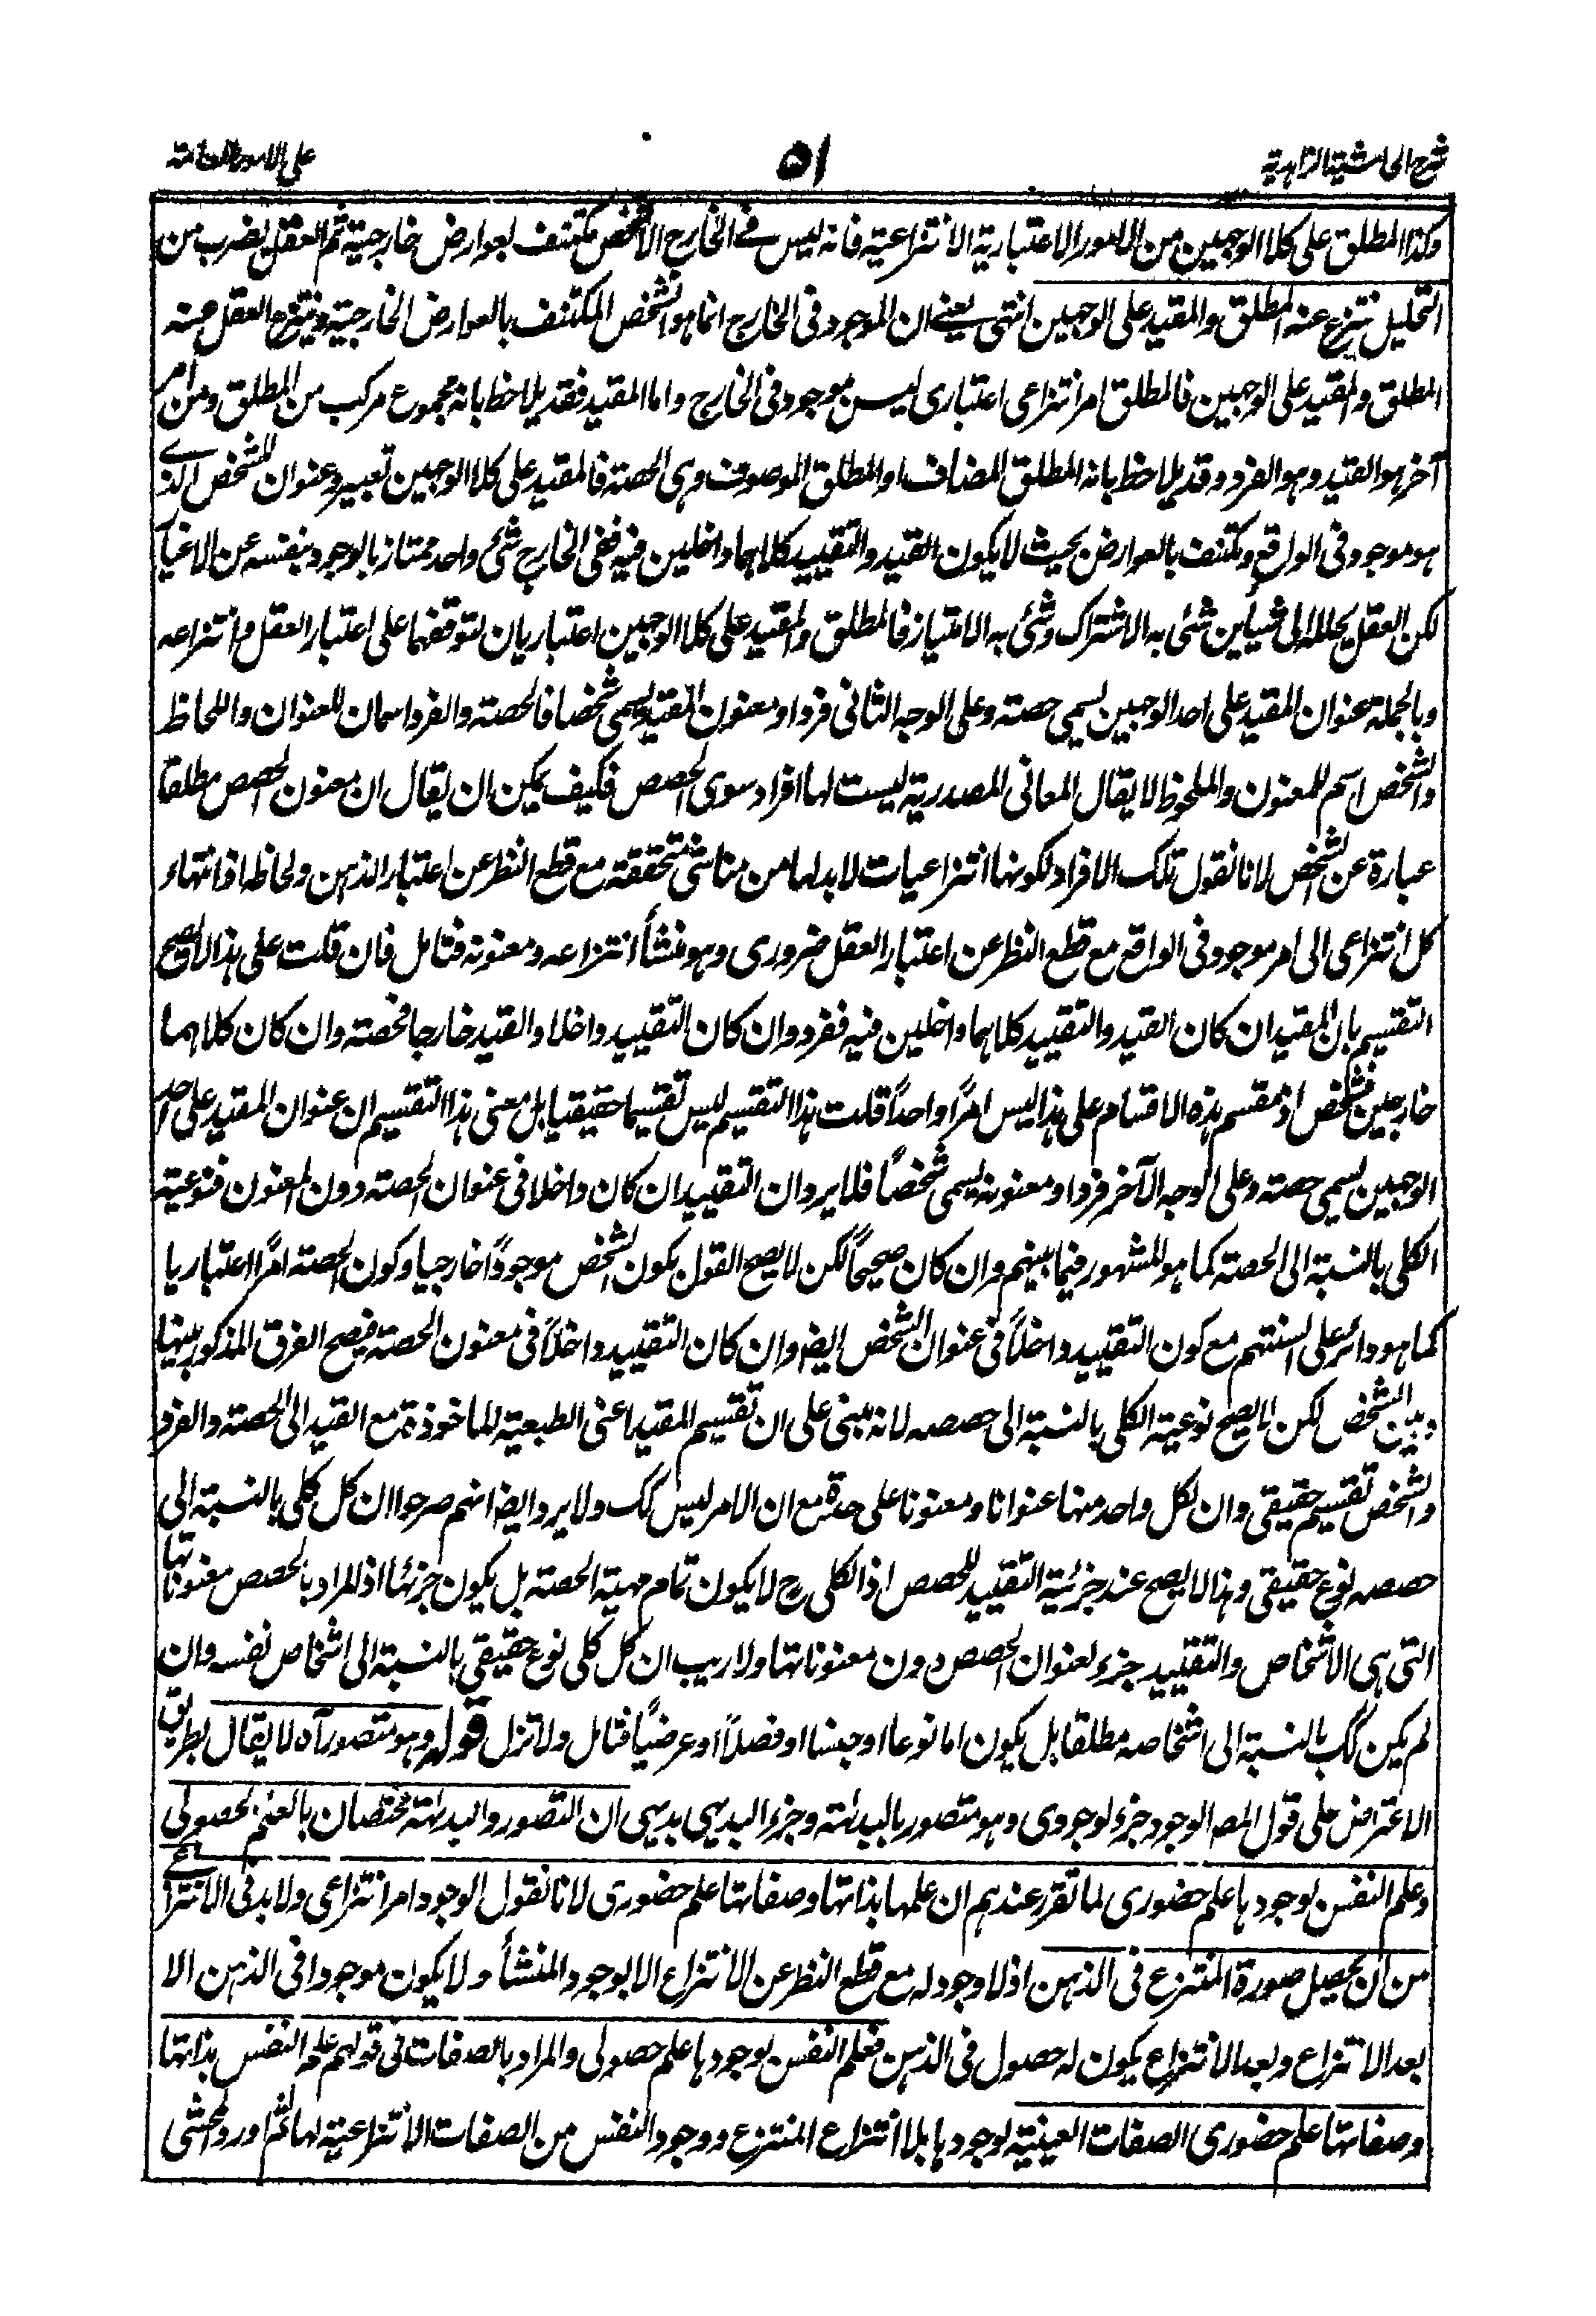 شرح الحاشية الزاهدية
٥١
على الامور العامة
وكذا المطلق على كلا الوجهين من الامور الاعتبارية الانتزاعية فانه ليس في الخارج الا شخص مكتنف بعوارض خارجية ثم العقل بضرب من
التحليل ينتزع عنه المطلق والمقيد على الوجهين انتهى يعني ان الموجود في الخارج انما هو الشخص المكتنف بالعوارض الخارجية وينتزع العقل منه
المطلق والمقيد على الوجهين فالمطلق امر انتزاعى اعتبارى ليس بموجود في الخارج واما المقيد فقد يلاحظ بانه مجموع مركب من المطلق ومن امر
آخر هو القيد وهو الفرد وقد يلاحظ بانه المطلق المضاف او المطلق الموصوف وهى الحصة فالمقيد على كلا الوجهين تعبير وعنوان للشخص الذي
هو موجود في الواقع ومكتنف بالعوارض بحيث لا يكون القيد والتقييد كلاهما داخلين فيه ففى الخارج شئ واحد ممتاز بالوجود بنفسه عن الاغيار
لكن العقل يحلله الى شيئين شئ به الاشتراك وشئ به الامتياز فالمطلق والمقيد على كلا الوجهين اعتباريان لتوقفهما على اعتبار العقل وانتزاعه
وبالجملة عنوان المقيد على احد الوجهين يسمى حصة وعلى الوجه الثانى فردا ومعنون المقيد يسمى شخصا فالحصة والفرد اسمان للعنوان واللحاظ
والشخص اسم للمعنون والملحوظ لا يقال المعانى المصدرية ليست لها افراد سوى الحصص فكيف يمكن ان يقال ان معنون الحصص مطلقا
عبارة عن الشخص لانا نقول تلك الافراد لكونها انتزاعيات لا بد لها من مناشى متحققة مع قطع النظر عن اعتبار الذهن ولحاظه اذ انتهاء
كل انتزاعى الى امر موجود في الواقع مع قطع النظر عن اعتبار العقل ضرورى وهو منشأ انتزاعه ومعنونه فتامل فان قلت على هذا لا يصح
التقسيم بان المقيد ان كان القيد والتقييد كلاهما داخلين فيه ففرد وان كان التقييد داخلا والقيد خارجا فحصة وان كان كلاهما
خارجين فشخص اذ مقسم هذه الاقسام على هذا ليس امرًا واحدًا قلت هذا التقسيم ليس تقسيما حقيقيا بل معنى هذا التقسيم ان عنوان المقيد على احد
الوجهين يسمى حصة وعلى الوجه الآخر فردا ومعنونه يسمى شخصًا فلا يرد ان التقييد ان كان داخلا في عنوان الحصة دون المعنون فنوعية
الكلى بالنسبة الى الحصة كما هو المشهور فيما بينهم وان كان صحيحًا لكن لا يصح القول بكون الشخص موجودًا خارجيا وكون الحصة امرًا اعتباريا
كما هو دائر على السنتهم مع كون التقييد داخلاً في عنوان الشخص ايضا وان كان التقييد داخلاً في معنون الحصة فيصح الفرق المذكور بينها
وبين الشخص لكن لا يصح نوعية الكلى بالنسبة الى حصصه لانه مبنى على ان تقسيم المقيد اعنى الطبعية الماخوذة مع القيد الى الحصة والفرد
والشخص تقسيم حقيقى وان لكل واحد منها عنوانا ومعنونا على حدة مع ان الامر ليس كك ولا يرد ايضا انهم صرحوا ان كل كلى بالنسبة الى
حصصه نوع حقيقى وهذا لا يصح عند جزئية التقييد للحصص اذ الكلى ح لا يكون تمام مهية الحصة بل يكون جزئها اذ المراد بالحصص معنوناتها
التى هى الاشخاص والتقييد جزء لعنوان الحصص دون معنوناتها ولا ريب ان كل كلى نوع حقيقى بالنسبة الى اشخاص نفسه وان
لم يكن كك بالنسبة الى اشخاصه مطلقا بل يكون اما نوعا او جنسا او فصلاً او عرضيًا فتامل ولا تزل قوله وهو متصور آه لا يقال بطريق
الاعتراض على قول المصـ الوجود جزء لوجودى وهو متصور بالبداهة وجزء البديهى بديهى ان التصور والبداهة مختصان بالعلم الحصولى
وعلم النفس بوجودها علم حضورى لما تقرر عندهم ان علمها بذاتها وصفاتها علم حضورى لانا نقول الوجود امر انتزاعى ولا بد فى الانتزاع
من ان يحصل صورة المنتزع فى الذهن اذ لا وجود له مع قطع النظر عن الانتزاع الا بوجود المنشأ ولا يكون موجودا فى الذهن الا
بعد الانتزاع وبعد الانتزاع يكون له حصول فى الذهن فعلم النفس بوجودها علم حصولى والمراد بالصفات فى قولهم علم النفس بذاتها
وصفاتها علم حضورى الصفات العينية لوجودها بلا انتزاع المنتزع ووجود النفس من الصفات الانتزاعية لها ثم اورد المحشى